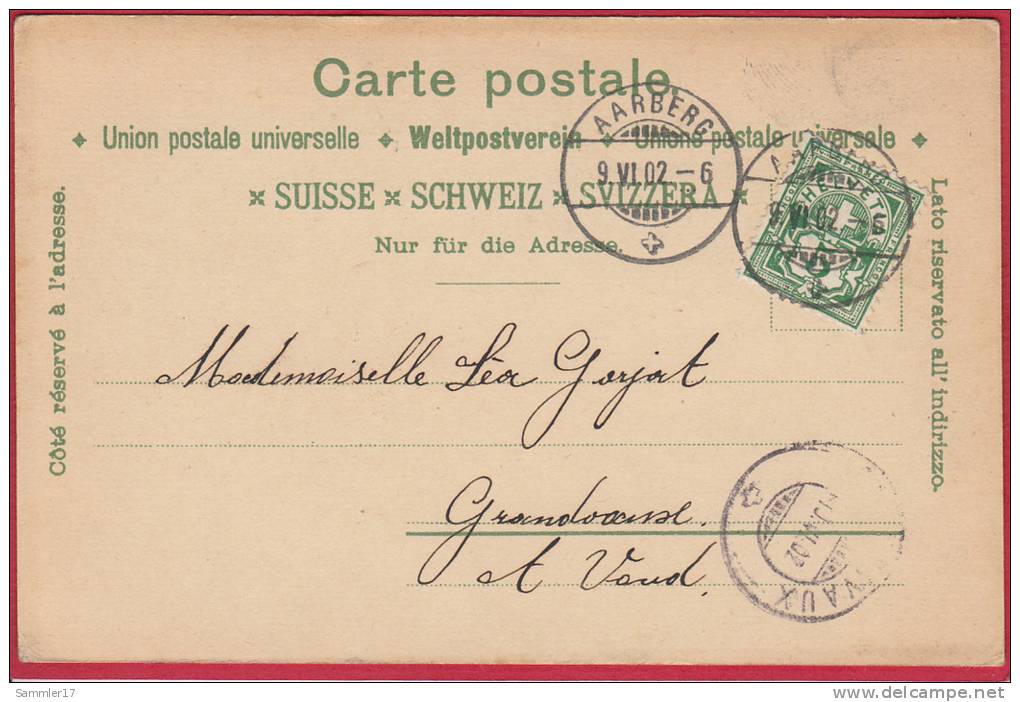 Carte postale.
Union postale universelle Weltpostverein Unione postale universale
SUISSE SCHWEIZ SVIZZERA
Nur für die Adresse.
Côté réservé à l'adresse.
Lato riservato all' indirizzo.
AARBERG
9.VI.02.-6
9.VI.02.-6
HELVETIA
5
Mademoiselle Léa Gorjat
Grandvaux.
Ct Vaud.
VAUX
VI.02
Sammler17
www.delcampe.net